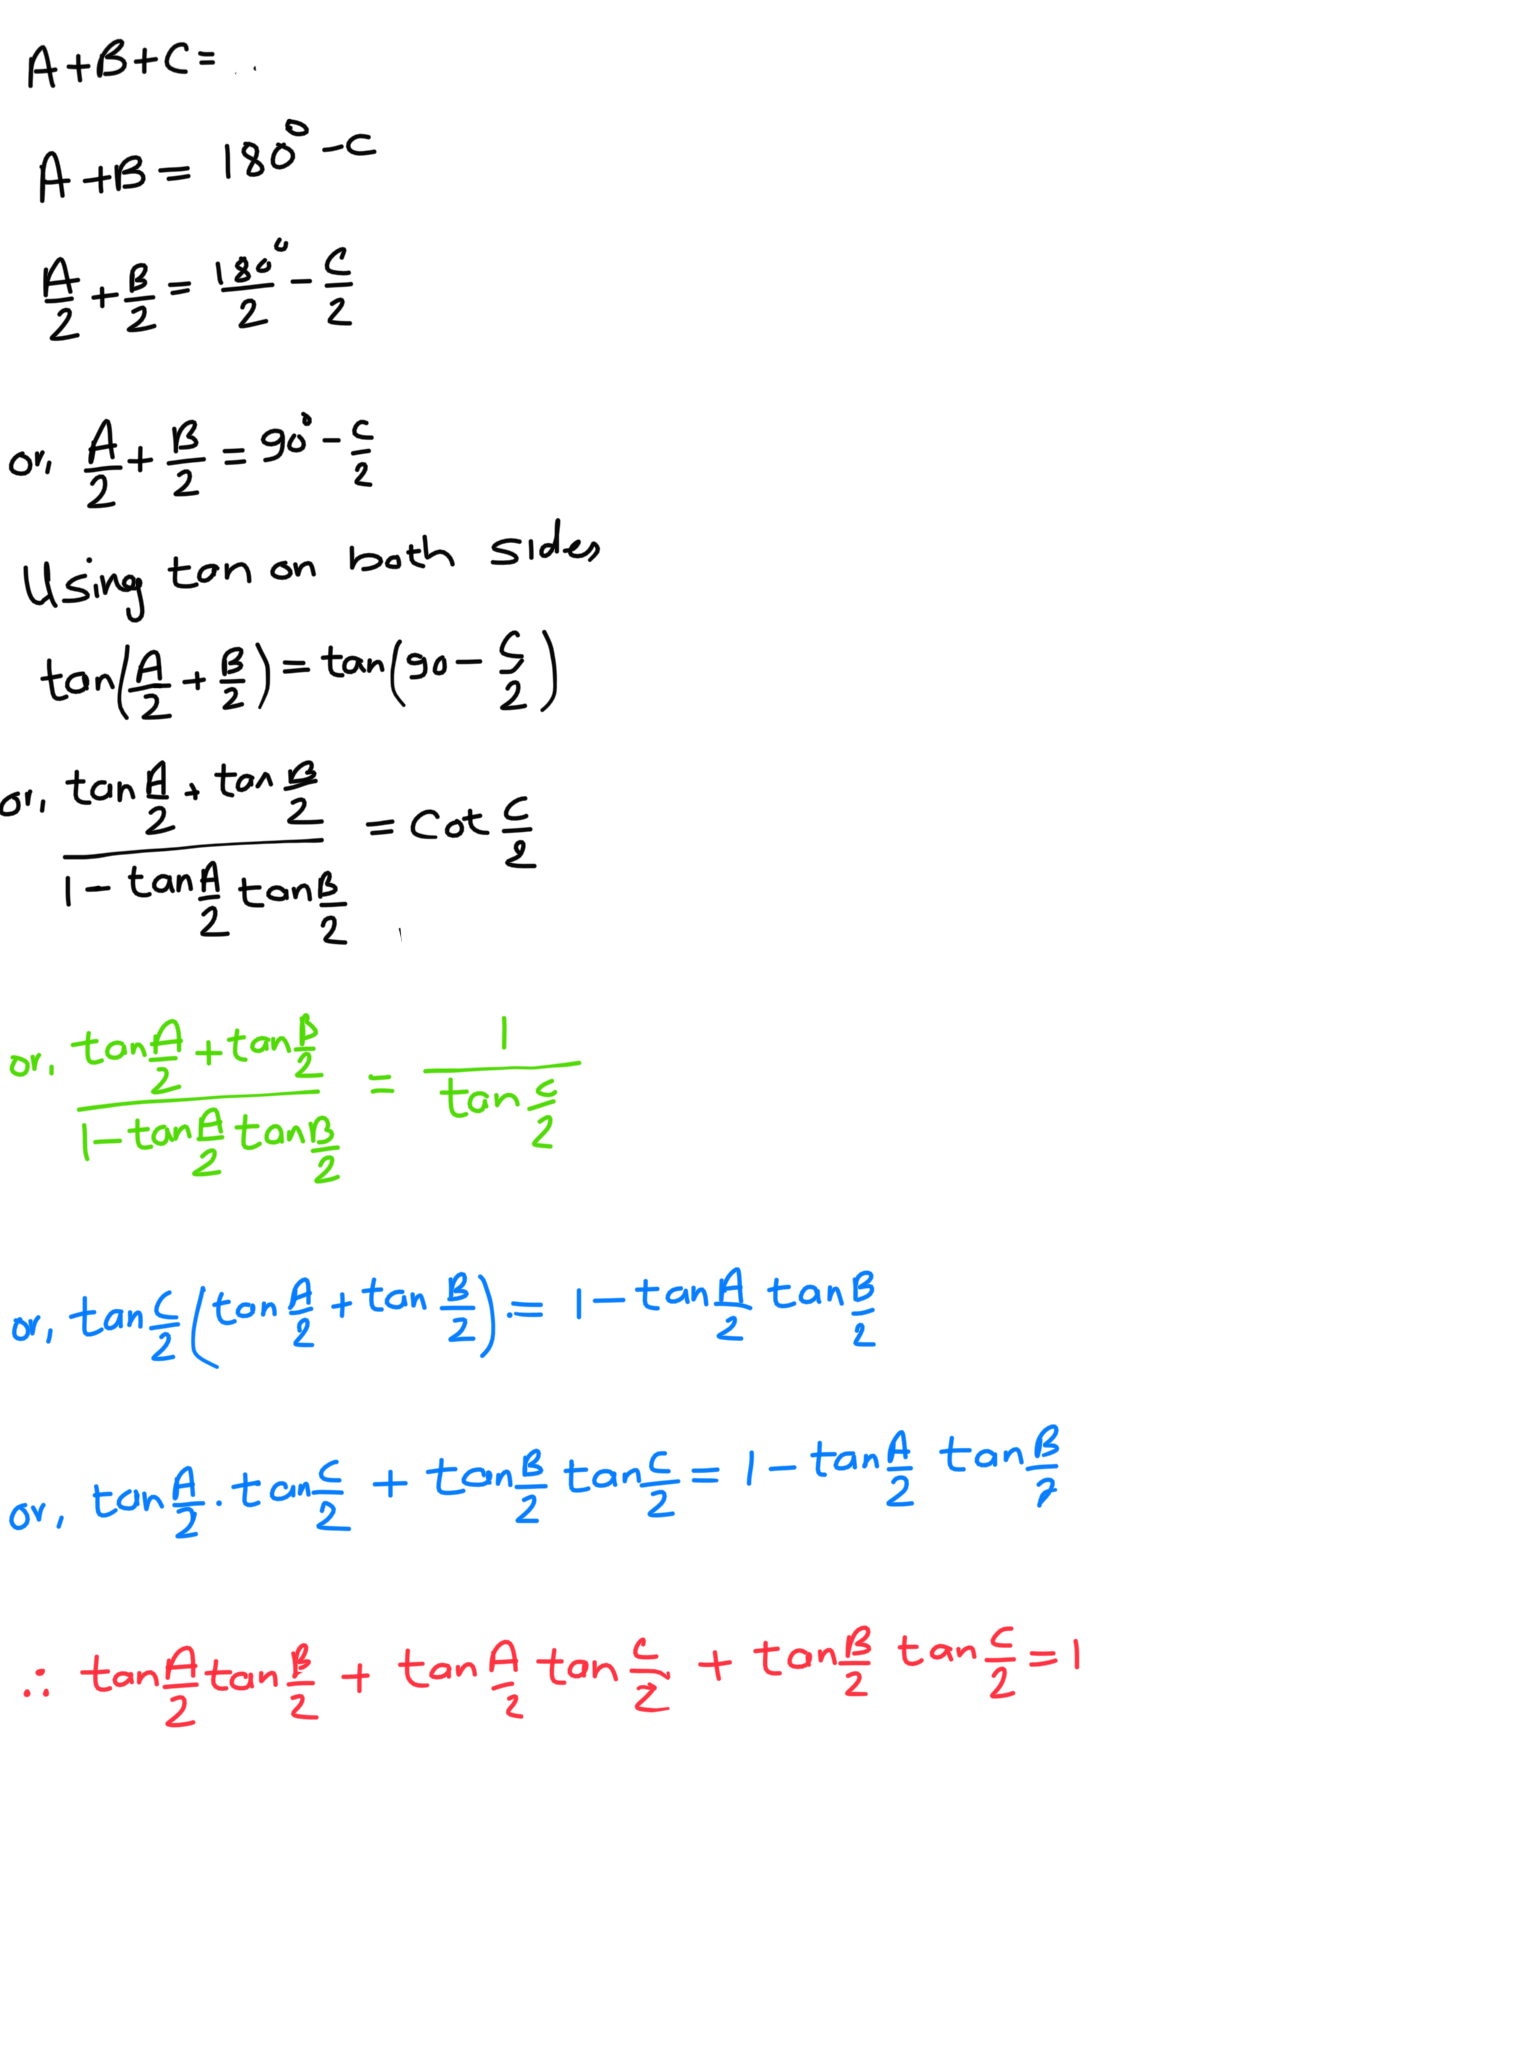 A+B+C=
A+B = 180° -C
A/2 + B/2 = 180°/2 - C/2
or, A/2 + B/2 = 90° - C/2
Using tan on both sides
tan(A/2 + B/2) = tan(90 - C/2)
or, (tan A/2 + tan B/2)/(1 - tan A/2 tan B/2) = Cot C/2
or, (tan A/2 + tan B/2)/(1 - tan A/2 tan B/2) = 1/(tan C/2)
or, tan C/2 (tan A/2 + tan B/2) = 1 - tan A/2 tan B/2
or, tan A/2 . tan C/2 + tan B/2 tan C/2 = 1 - tan A/2 tan B/2
∴ tan A/2 tan B/2 + tan A/2 tan C/2 + tan B/2 tan C/2 = 1